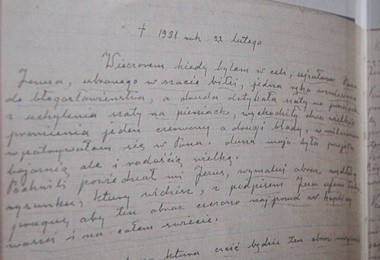 † 1931 rok 22 lutego
Wieczorem kiedy byłam w celi, ujrzałam Pana
Jezusa, ubranego w szacie białej, jedna ręka wzniesiona
do błogosławieństwa, a druga dotykała szaty na piersiach
z uchylenia szaty na piersiach, wychodziły dwa wielkie
promienia jeden czerwony a drugi blady, w milczeniu
wpatrywałam się w Pana, dusza moja była przejęta
bojaźnią, ale i radością wielką.
Po chwili powiedział mi Jezus, wymaluj obraz według
rysunku, który widzisz, z podpisem Jezu ufam
pragnę, aby ten obraz czczono najprzód w kaplicy
waszej i na całem świecie.
która czcić będzie ten obraz